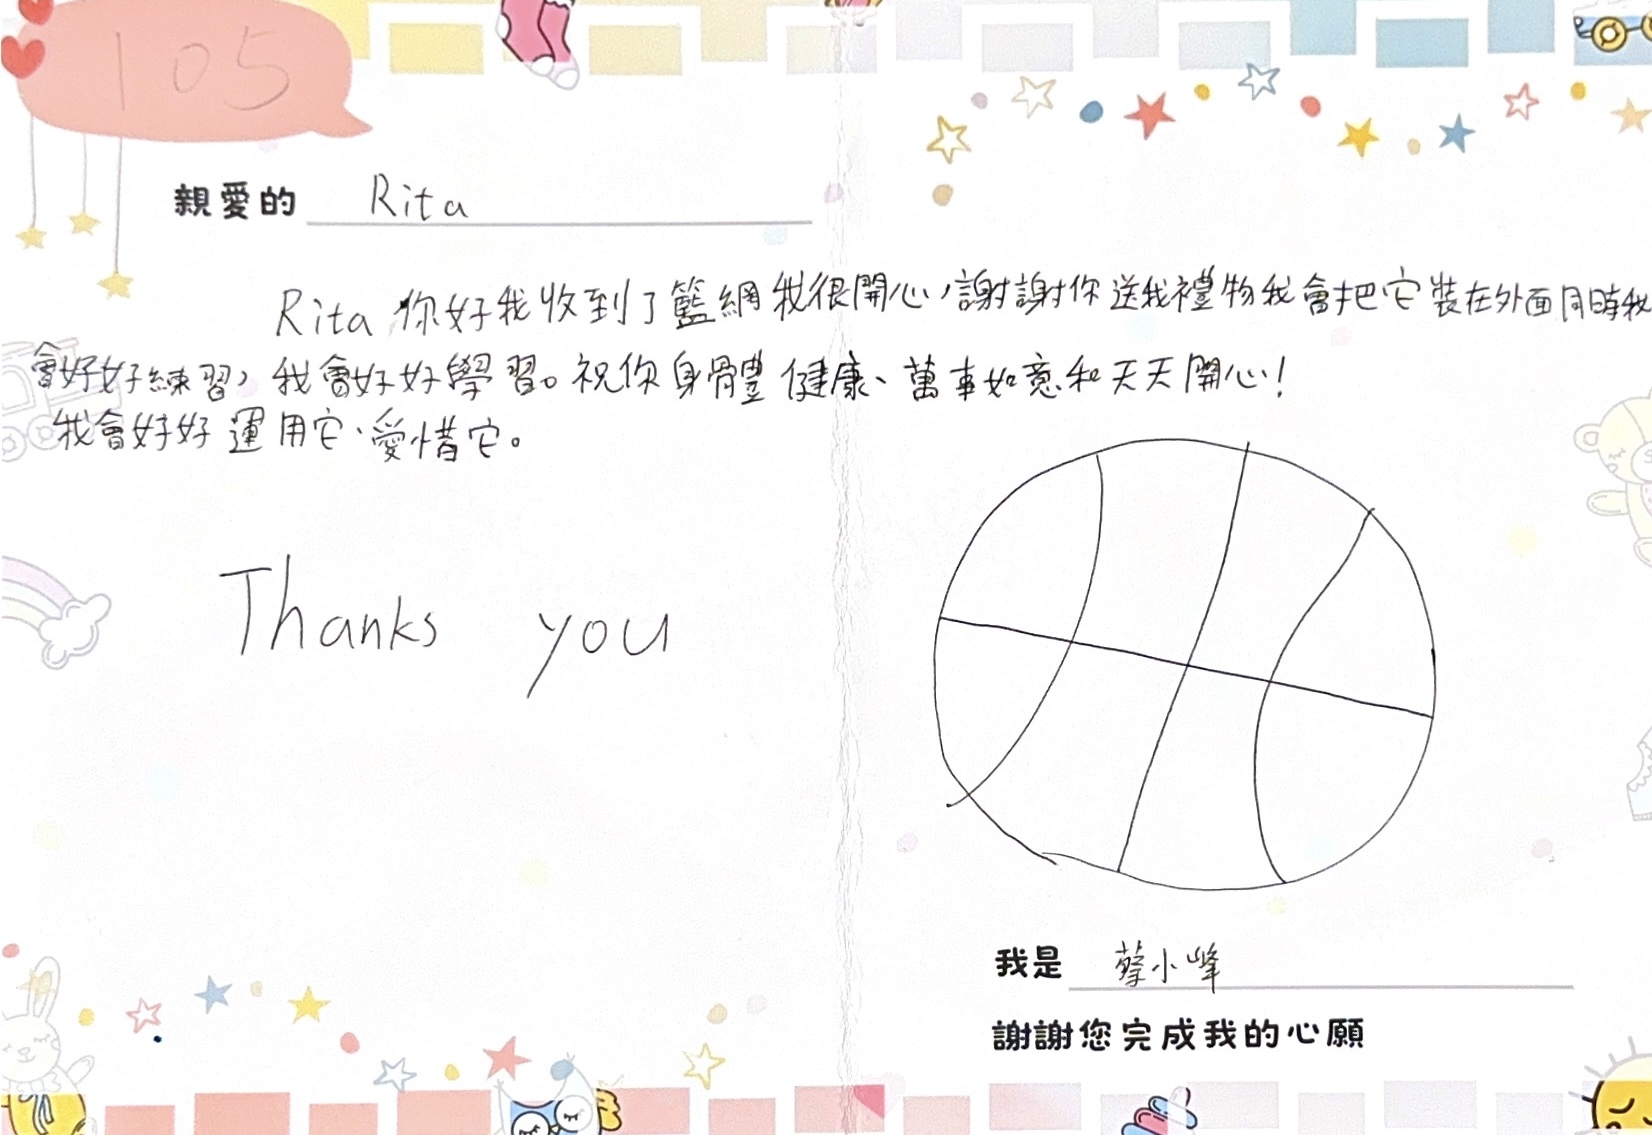 105
親愛的 Rita
Rita 你好我收到了籃網我很開心,謝謝你送我禮物我會把它裝在外面同時我
會好好練習,我會好好學習。祝你身體健康、萬事如意和天天開心!
我會好好運用它、愛惜它。
Thanks you
我是 蔡小峰
謝謝您完成我的心願